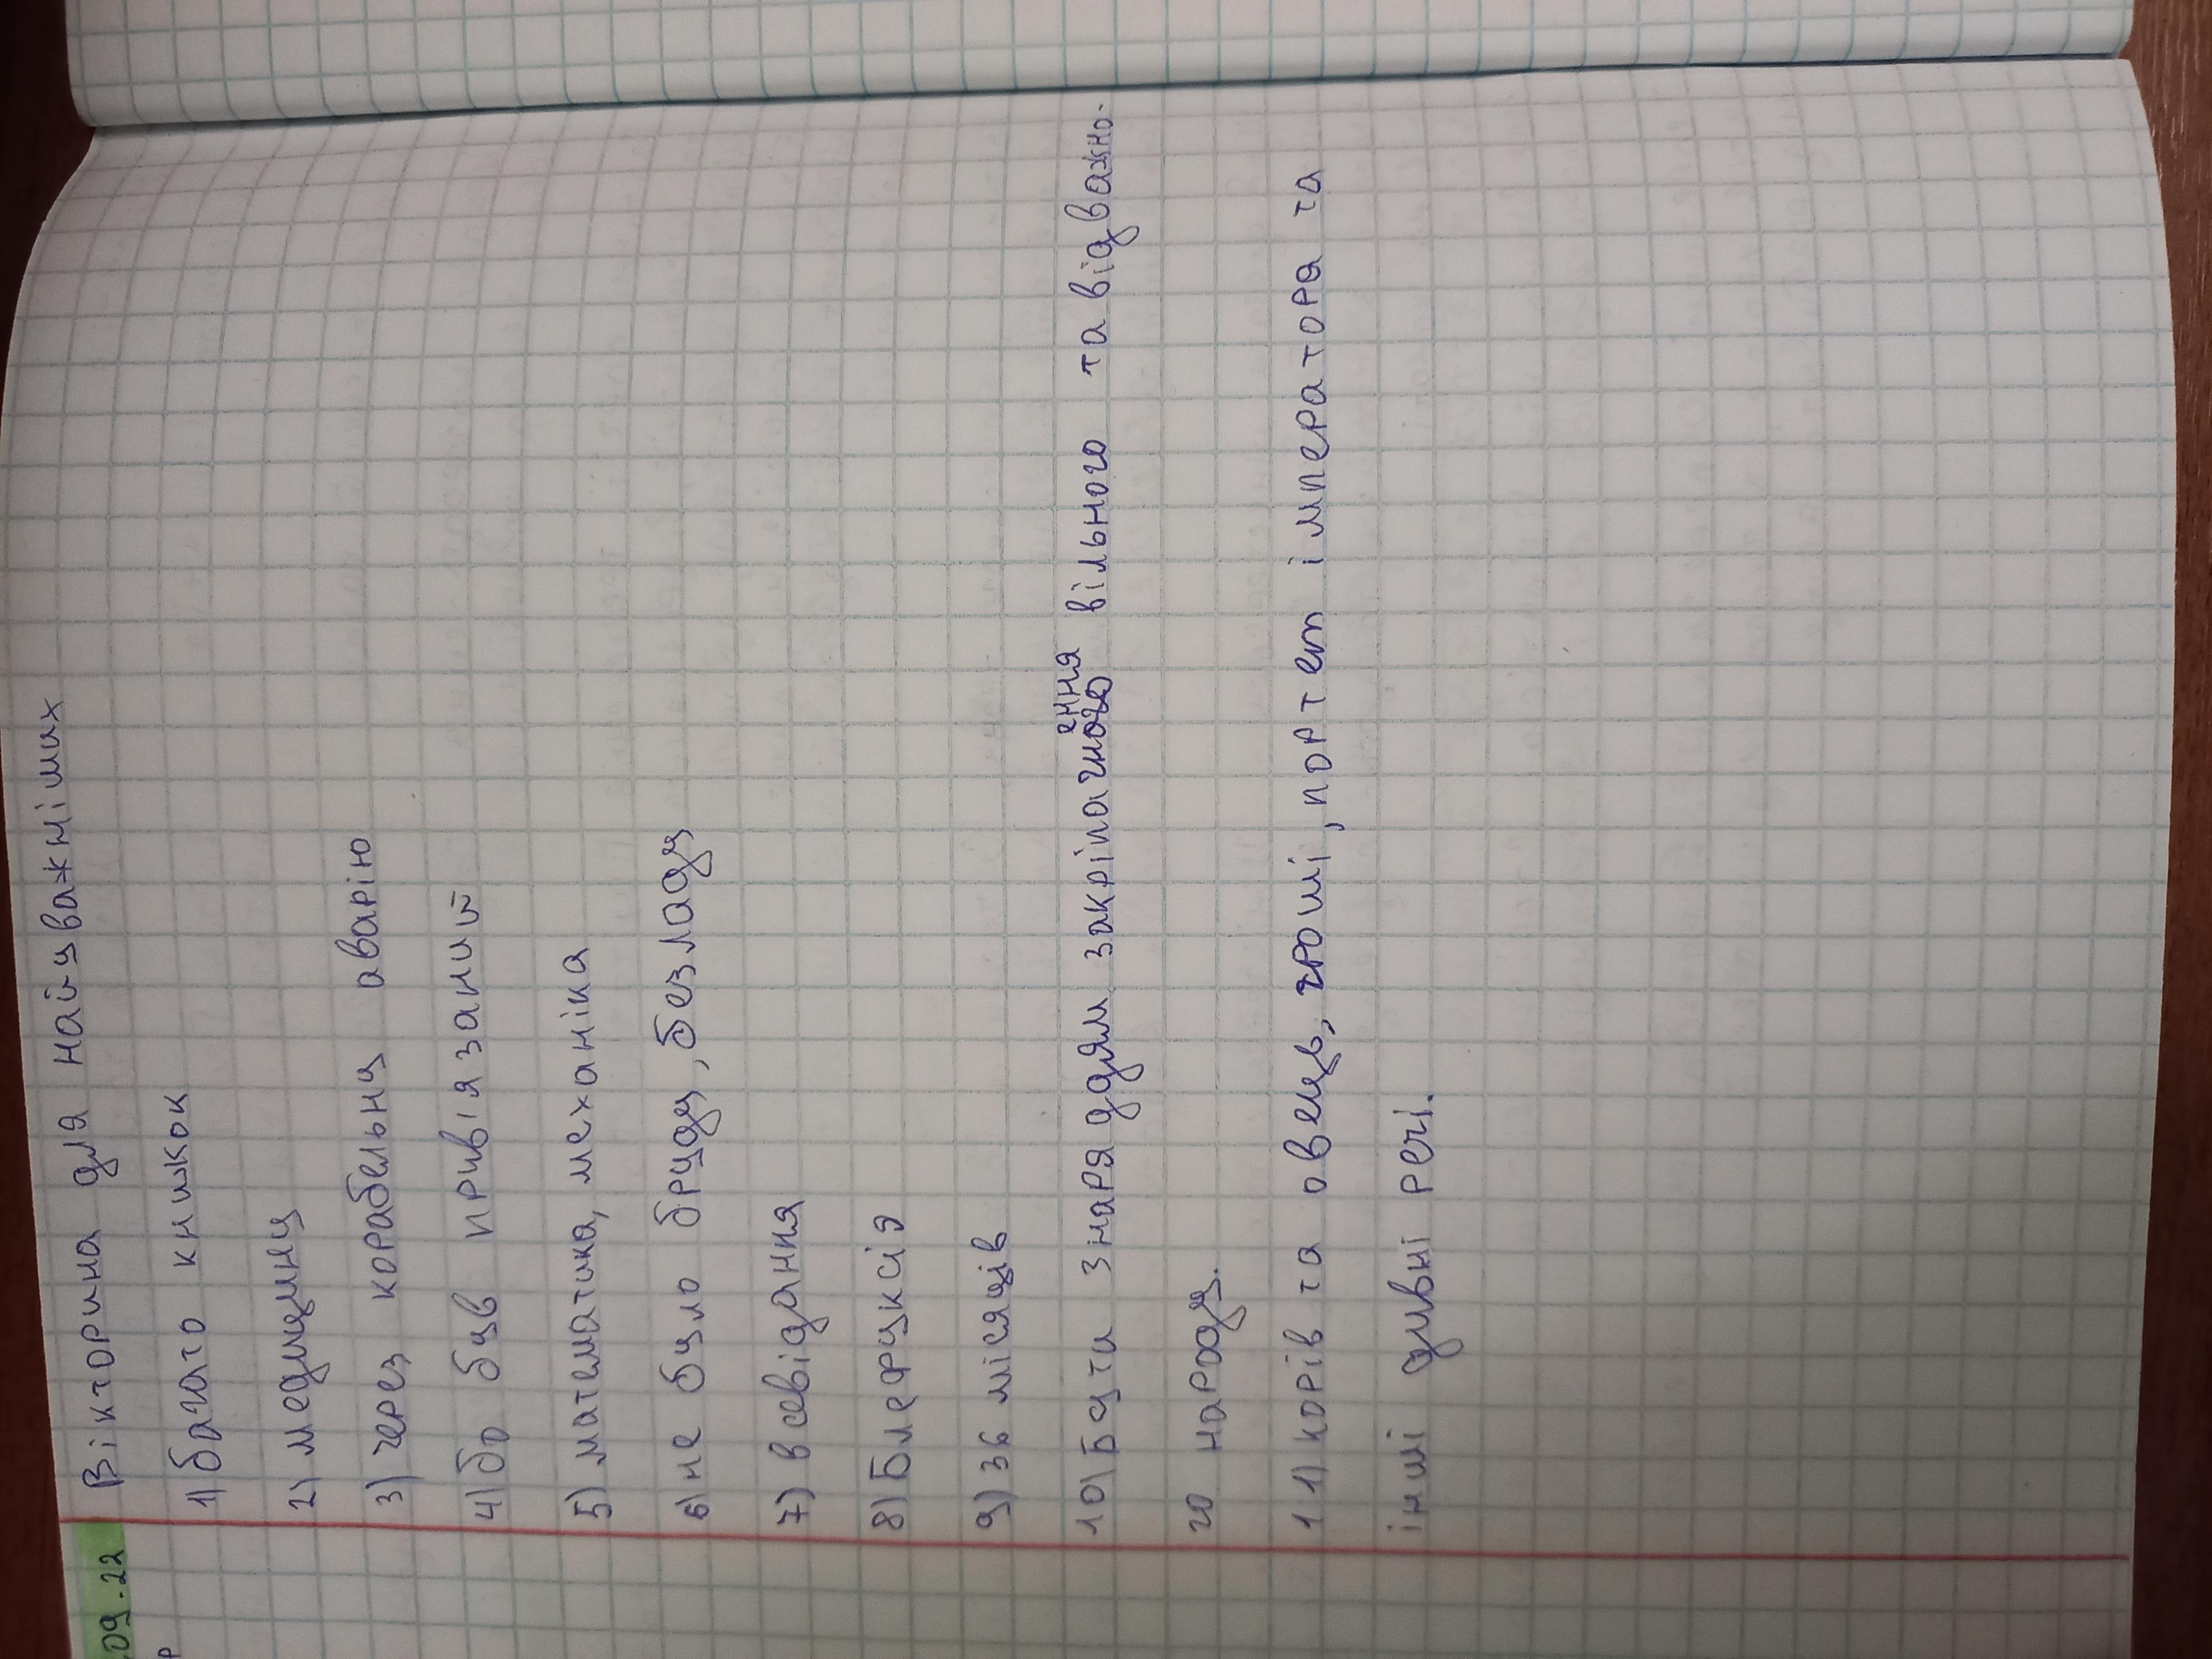 09.22
Р
Вікторина для найуважніших
1) багато книжок
2) медицину
3) через корабельну аварію
4) бо був прив'язаний
5) математика, механіка
6) не було бруду, безладу
7) всвідання
8) Блефуксіэ
9) 36 місяців
10) Бути знаряддям закріпачення вільного та відважно-
го народу.
11) корів та овець, гроші, портет імператора та
інші дивні речі.